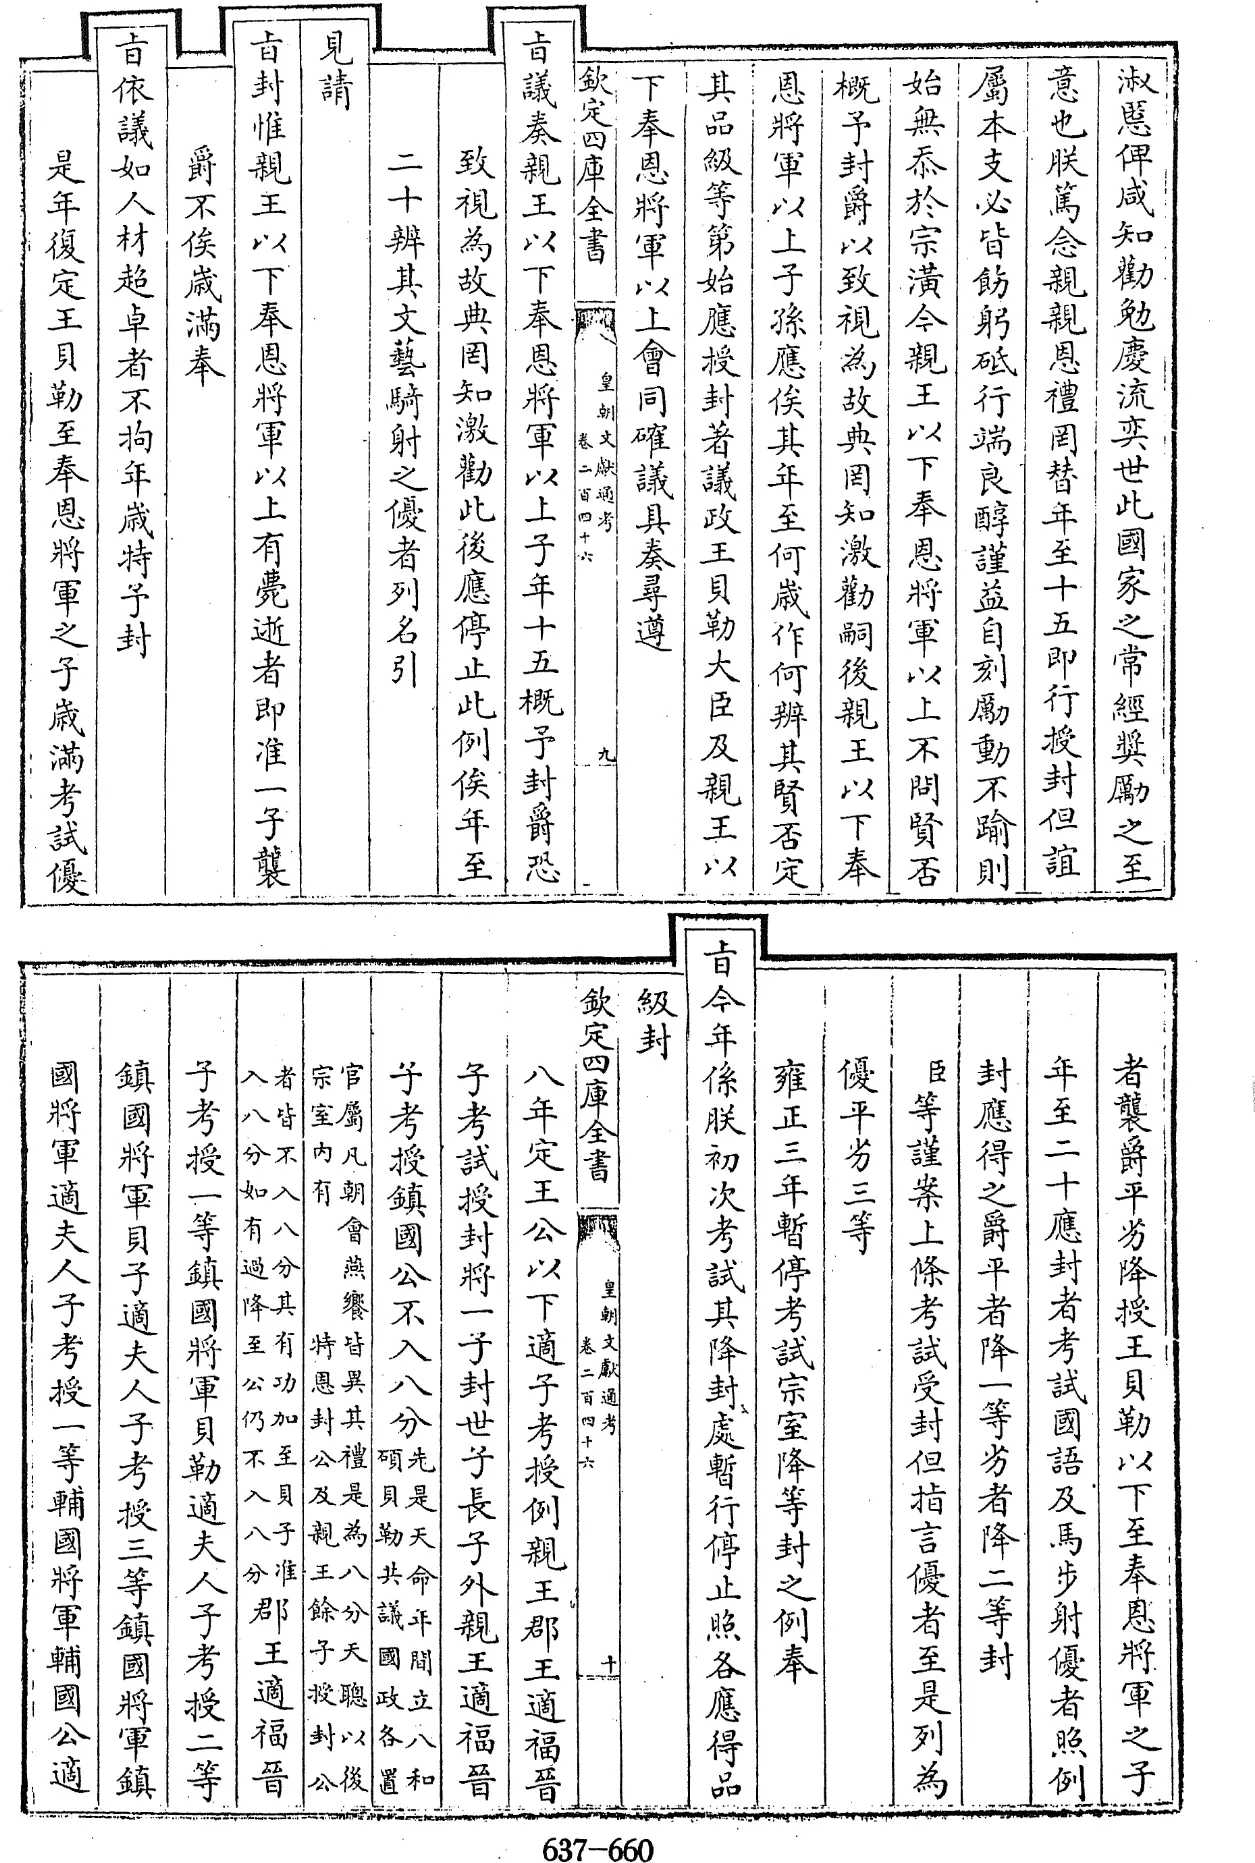 淑慝俾咸知勸勉慶流奕世此國家之常經獎勵之至
意也朕篤念親親恩禮罔替年至十五即行授封但誼
屬本支必皆飭躬砥行端良醇謹益自刻勵動不踰則
始無忝於宗潢今親王以下奉恩將軍以上不問賢否
概予封爵以致視為故典罔知激勸嗣後親王以下奉
恩將軍以上子孫應俟其年至何歳作何辨其賢否定
其品級等第始應授封著議政王貝勒大臣及親王以
下奉恩將軍以上會同確議具奏尋遵
欽定四庫全書
皇朝文獻通考
卷二百四十六
九
㫖議奏親王以下奉恩將軍以上子年十五概予封爵恐
致視為故典罔知激勸此後應停止此例俟年至
二十辨其文藝騎射之優者列名引
見請
㫖封惟親王以下奉恩將軍以上有薨逝者即准一子襲
爵不俟歳滿奉
㫖依議如人材超卓者不拘年歳特予封
是年復定王貝勒至奉恩將軍之子歳滿考試優
者襲爵平劣降授王貝勒以下至奉恩將軍之子
年至二十應封者考試國語及馬步射優者照例
封應得之爵平者降一等劣者降二等封
臣等謹案上條考試受封但指言優者至是列為
優平劣三等
雍正三年暫停考試宗室降等封之例奉
㫖今年係朕初次考試其降封處暫行停止照各應得品
級封
欽定四庫全書
皇朝文獻通考
卷二百四十六
十
八年定王公以下適子考授例親王郡王適福晉
子考試授封將一子封世子長子外親王適福晉
子考授鎮國公不入八分先是天命年間立八和
碩貝勒共議國政各置
官屬凡朝會燕饗皆異其禮是為八分天聰以後
宗室内有特恩封公及親王餘子授封公
者皆不入八分其有功加至貝子准
入八分如有過降至公仍不入八分郡王適福晉
子考授一等鎮國將軍貝勒適夫人子考授二等
鎮國將軍貝子適夫人子考授三等鎮國將軍鎮
國將軍適夫人子考授一等輔國將軍輔國公適
637-660